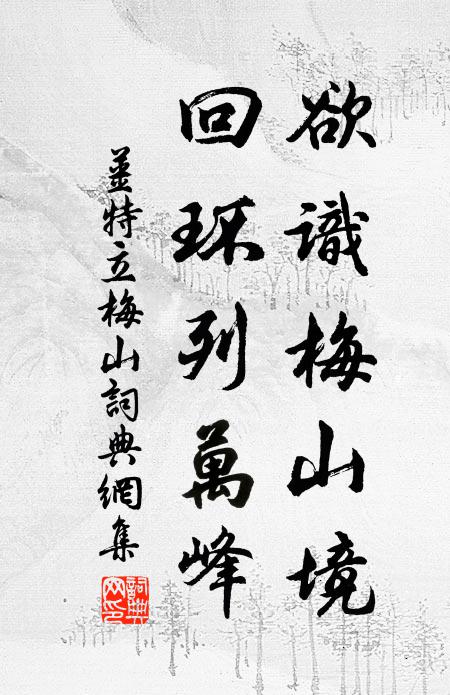 欲識梅山境
回环列萬峰
薑特立梅山詞典網集
詞典网印